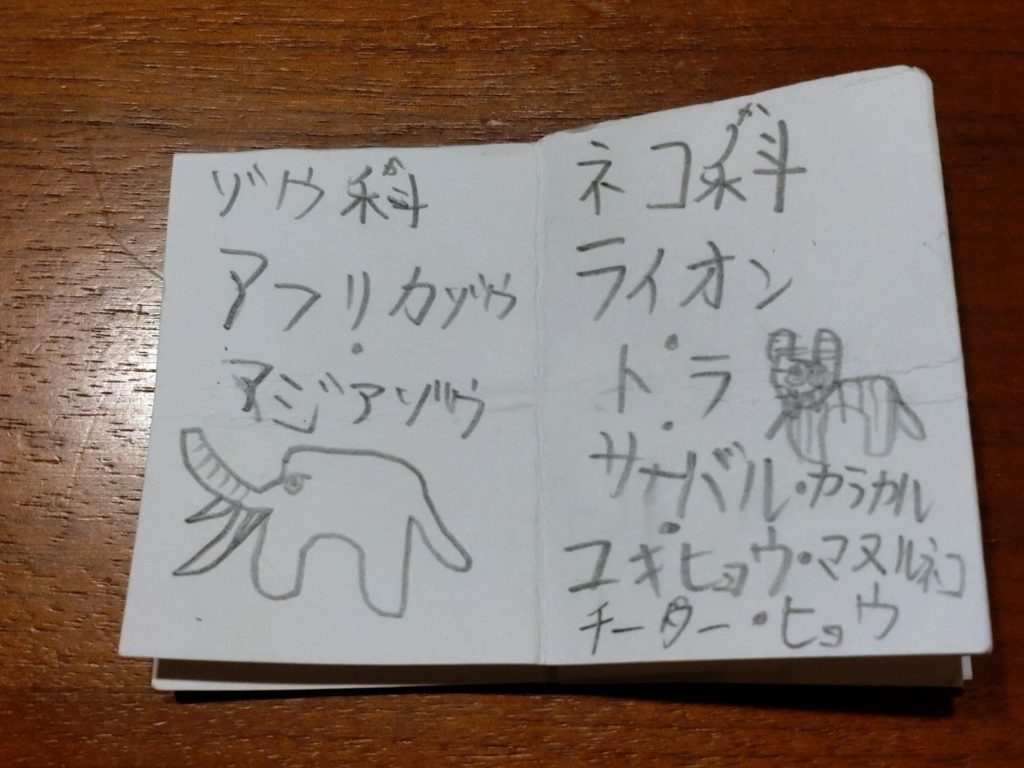 ゾウ科
アフリカゾウ
・
アジアゾウ
ネコ科
ライオン
・
トラ
・
サーバル・カラカル
・
ユキヒョウ・マヌルネコ
チーター・ヒョウ